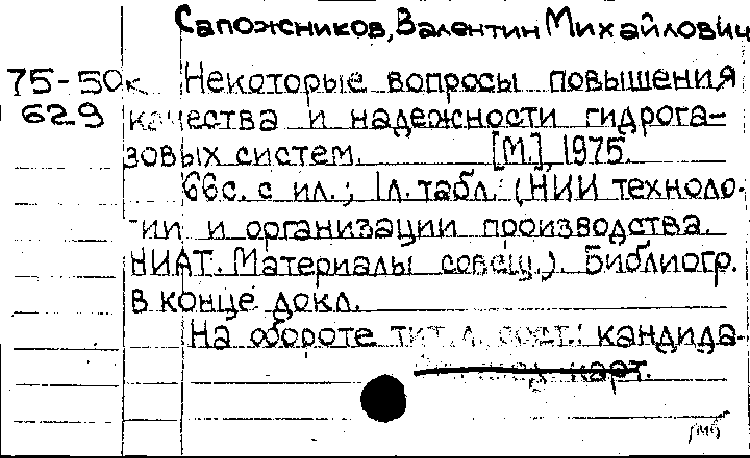 Сапожников, Валентин Михайлович
75-50к Некоторые вопросы повышения
629 качества и надежности гидрога-
зовых систем. [М.], 1975.
66с. с ил.; 1л. табл. (НИИ техноло-
гии и организации производства.
НИАТ. Материалы совещ.). Библиогр.
в конце докл.
На обороте тит. л. сост.: кандида-
карт.